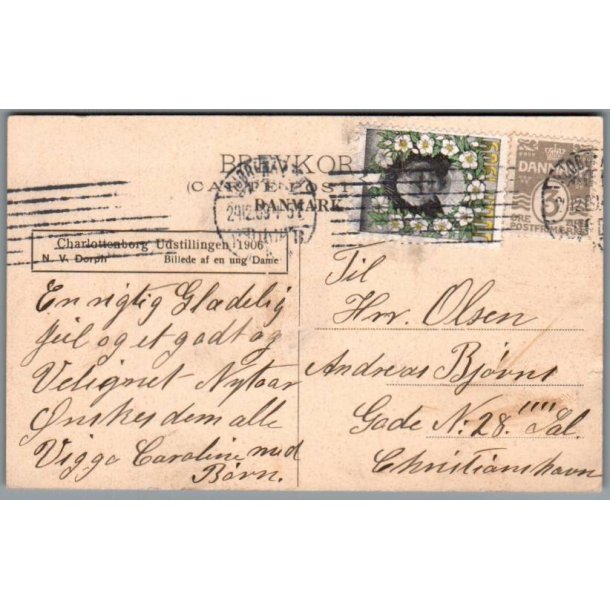 BREVKORT
(CARTE POSTALE)
DANMARK.
29.12.09
DANMARK
3
ØRE
POSTFRIMÆRKE
Charlottenborg Udstillingen 1906
N. V. Dorph Billede af en ung Dame
En rigtig Gladelig
juil og et godt og
Velignet Nytaar
Ønskes dem alle
Viggo Caroline med
Børn.
Til
Hrr. Olsen
Andreas Bjørns
Gade N: 28. """ Sal.
Christianshavn